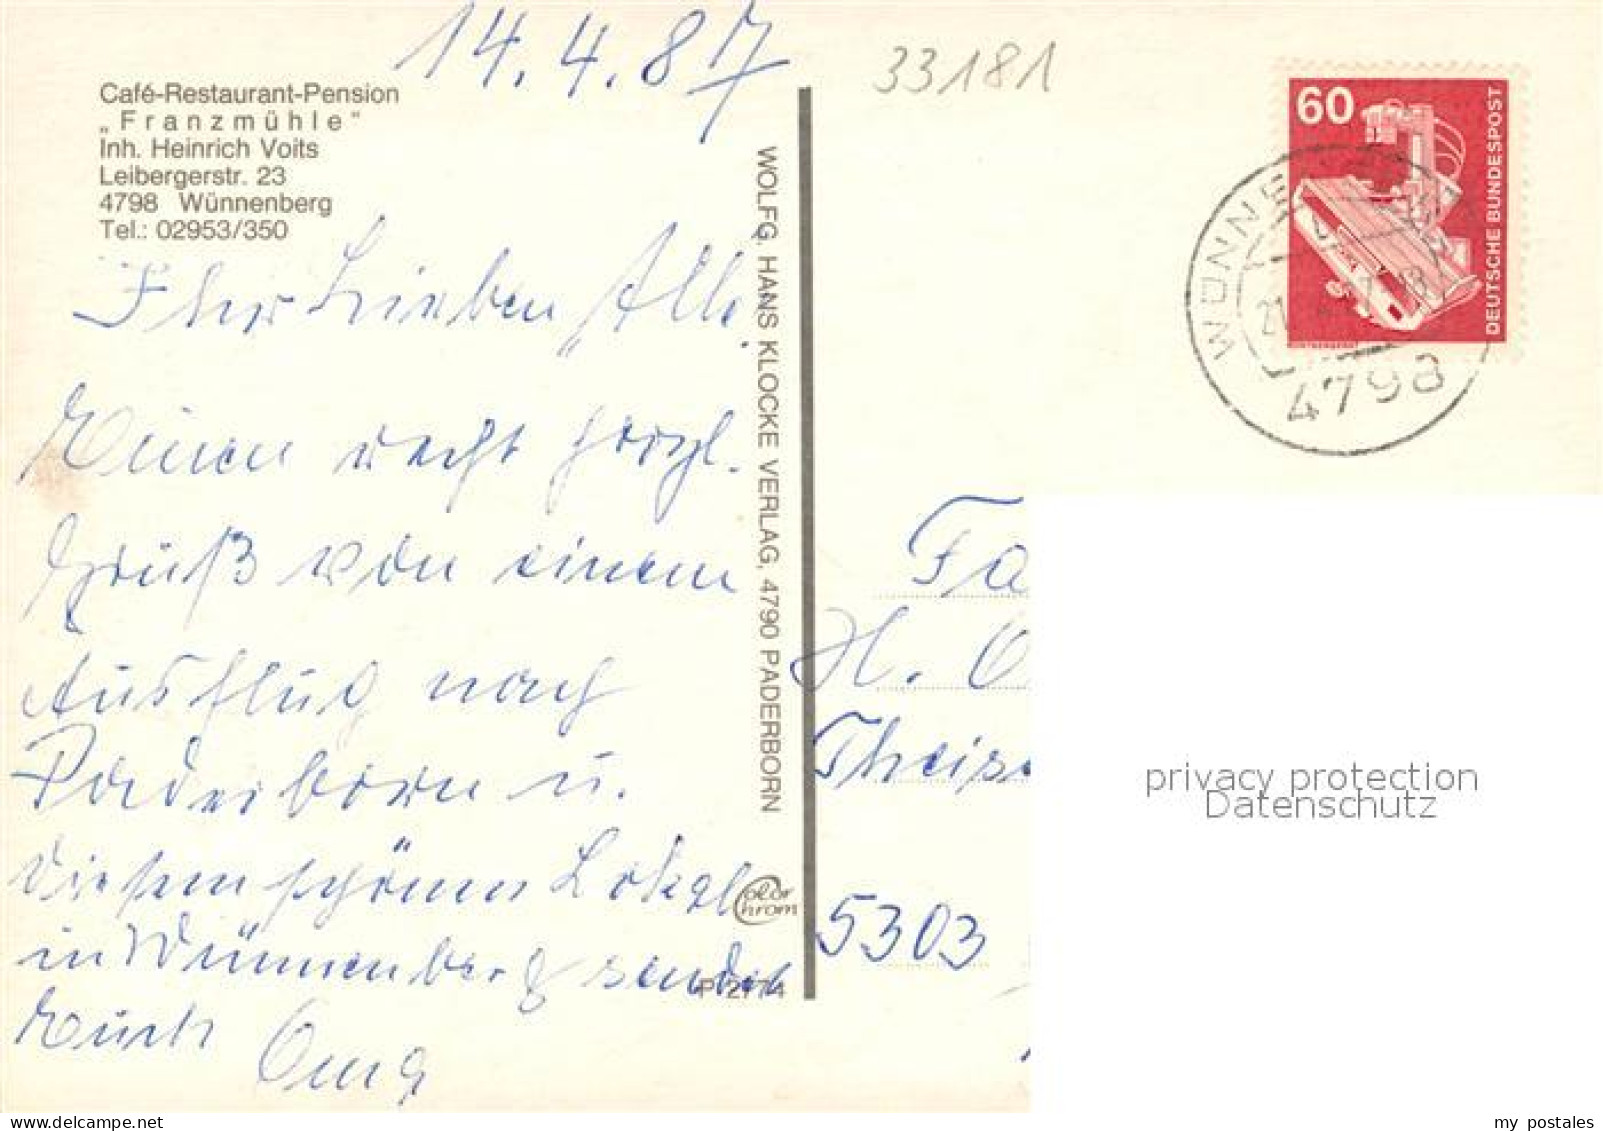 14.4.87
33181
Café-Restaurant-Pension
„Franzmühle"
Inh. Heinrich Voits
Leibergerstr. 23
4798 Wünnenberg
Tel.: 02953/350
Ihr Lieben Alle
Einen recht herzl.
Gruß von einem
Ausflug nach
Paderborn u.
diesem schönen Lokal
in Wünnenberg sendet
Euch Oma
WOLFG. HANS KLOCKE VERLAG, 4790 PADERBORN
Color Chrom
P 2174
60
DEUTSCHE BUNDESPOST
WÜNNE
21
4798
Fa
H. O
Theis
5303
privacy protection
Datenschutz
my postales